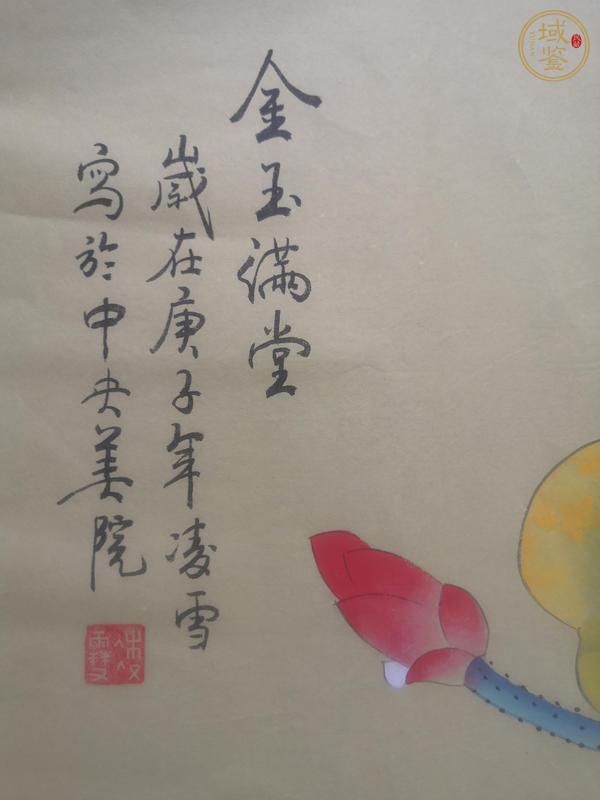 金玉满堂
歲在庚子年凌雪
寫於中央美院
域鉴